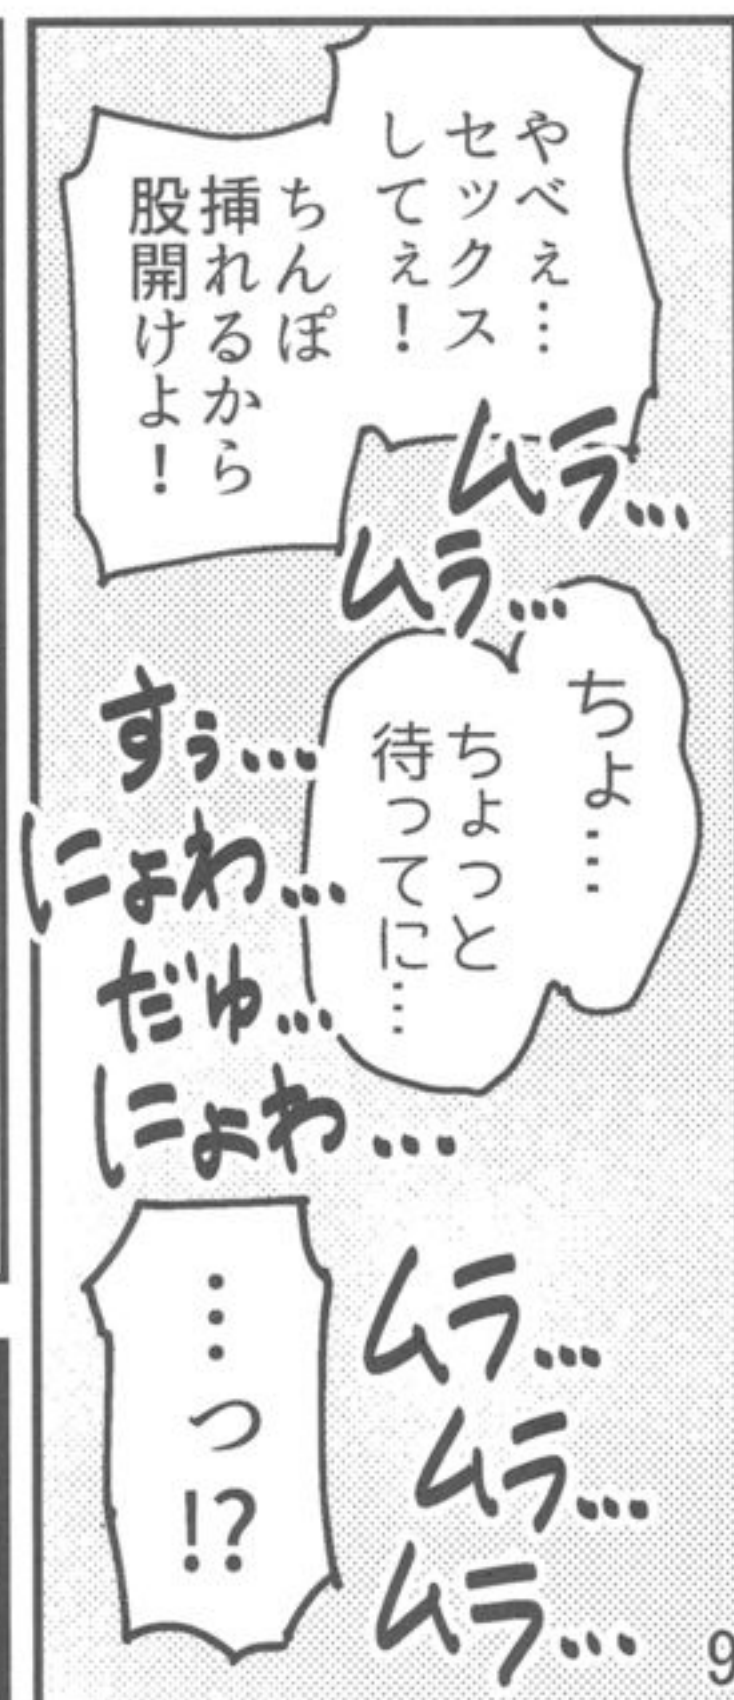 やべぇ…
セックス
してぇ！
ちんぽ
挿れるから
股開けよ！
ムラ…
ムラ…
ちょ…
ちょっと
待ってに…
すぅ…
にょわ…
だゅ…
にょわ…
ムラ…
ムラ…
ムラ…
…っ!?
9